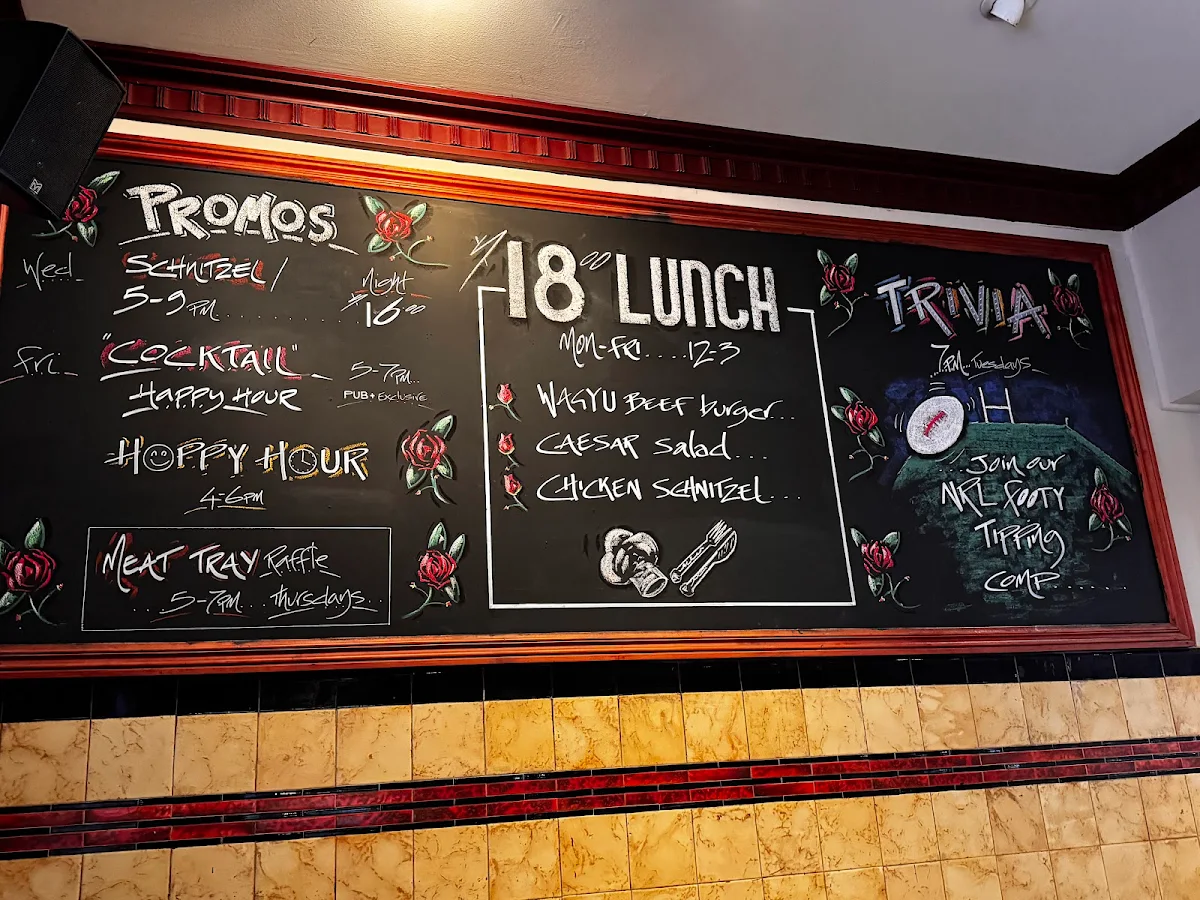 PROMOS
Wed SCHNITZEL / Night
5-9PM........... $16.00
Fri "COCKTAIL" 5-7PM...
HAPPY HOUR PUB + EXCLUSIVE
HOPPY HOUR
4-6PM
MEAT TRAY Raffle
....5-7PM...Thursdays..
$18.00 LUNCH
MON-FRI....12-3
WAGYU BEEF burger..
CAESAR Salad...
CHICKEN SCHNITZEL...
TRIVIA
7PM...Tuesdays
...Join our
NRL FOOTY
TIPPING
COMP.......